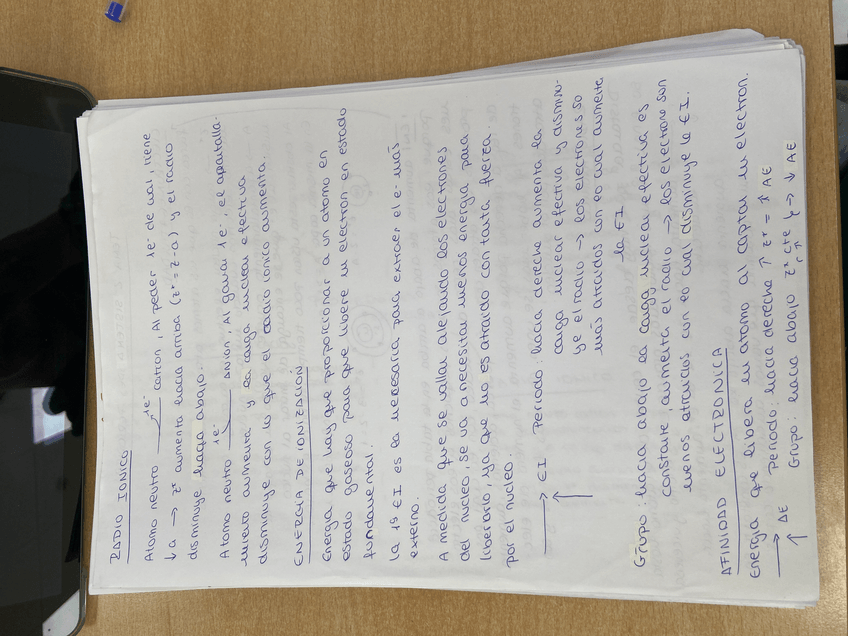 RADIO IONICO
Atomo neutro 1e⁻ cation, Al perder 1e⁻ de val, tiene
↓a → z* aumenta hacia arriba (z* = z-a) y el radio
disminuye hacia abajo.
Atomo neutro 1e⁻ anion. Al ganar 1e⁻, el apantalla-
miento aumenta y la carga nuclear efectiva
disminuye con lo que el radio ionico aumenta.
ENERGIA DE IONIZACIÓN
Energia que hay que proporcionar a un atomo en
estado gaseoso para que libere un electron en estado
fundamental.
La 1ª EI es la necesaria para extraer el e⁻ más
externo.
A medida que se vallan alejando los electrones
del nucleo, se va a necesitar menos energia para
liberarlo, ya que no es atraido con tanta fuerza
por el nucleo.
→ EI Periodo: hacia derecha aumenta la
↑ carga nuclear efectiva y disminu-
ye el radio → los electrones so
más atraidos con lo cual aumenta
la EI
Grupo: hacia abajo la carga nuclear efectiva es
constante, aumenta el radio → los electrone son
menos atraidos con lo cual disminuye la EI.
AFINIDAD ELECTRONICA
Energia que libera un atomo al captar un electron.
→ AE Periodo: hacia derecha ↑ z* = ↑ AE
↑ Grupo: hacia abajo z* cte r↑ } → ↓ AE